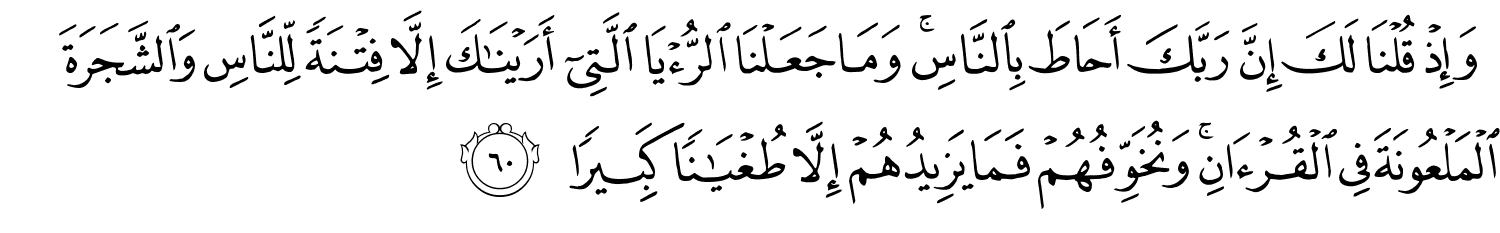 وَإِذۡ قُلۡنَا لَكَ إِنَّ رَبَّكَ أَحَاطَ بِٱلنَّاسِۚ وَمَا جَعَلۡنَا ٱلرُّءۡيَا ٱلَّتِيٓ أَرَيۡنَٰكَ إِلَّا فِتۡنَةٗ لِّلنَّاسِ وَٱلشَّجَرَةَ
ٱلۡمَلۡعُونَةَ فِي ٱلۡقُرۡءَانِۚ وَنُخَوِّفُهُمۡ فَمَا يَزِيدُهُمۡ إِلَّا طُغۡيَٰنٗا كَبِيرٗا ٦٠